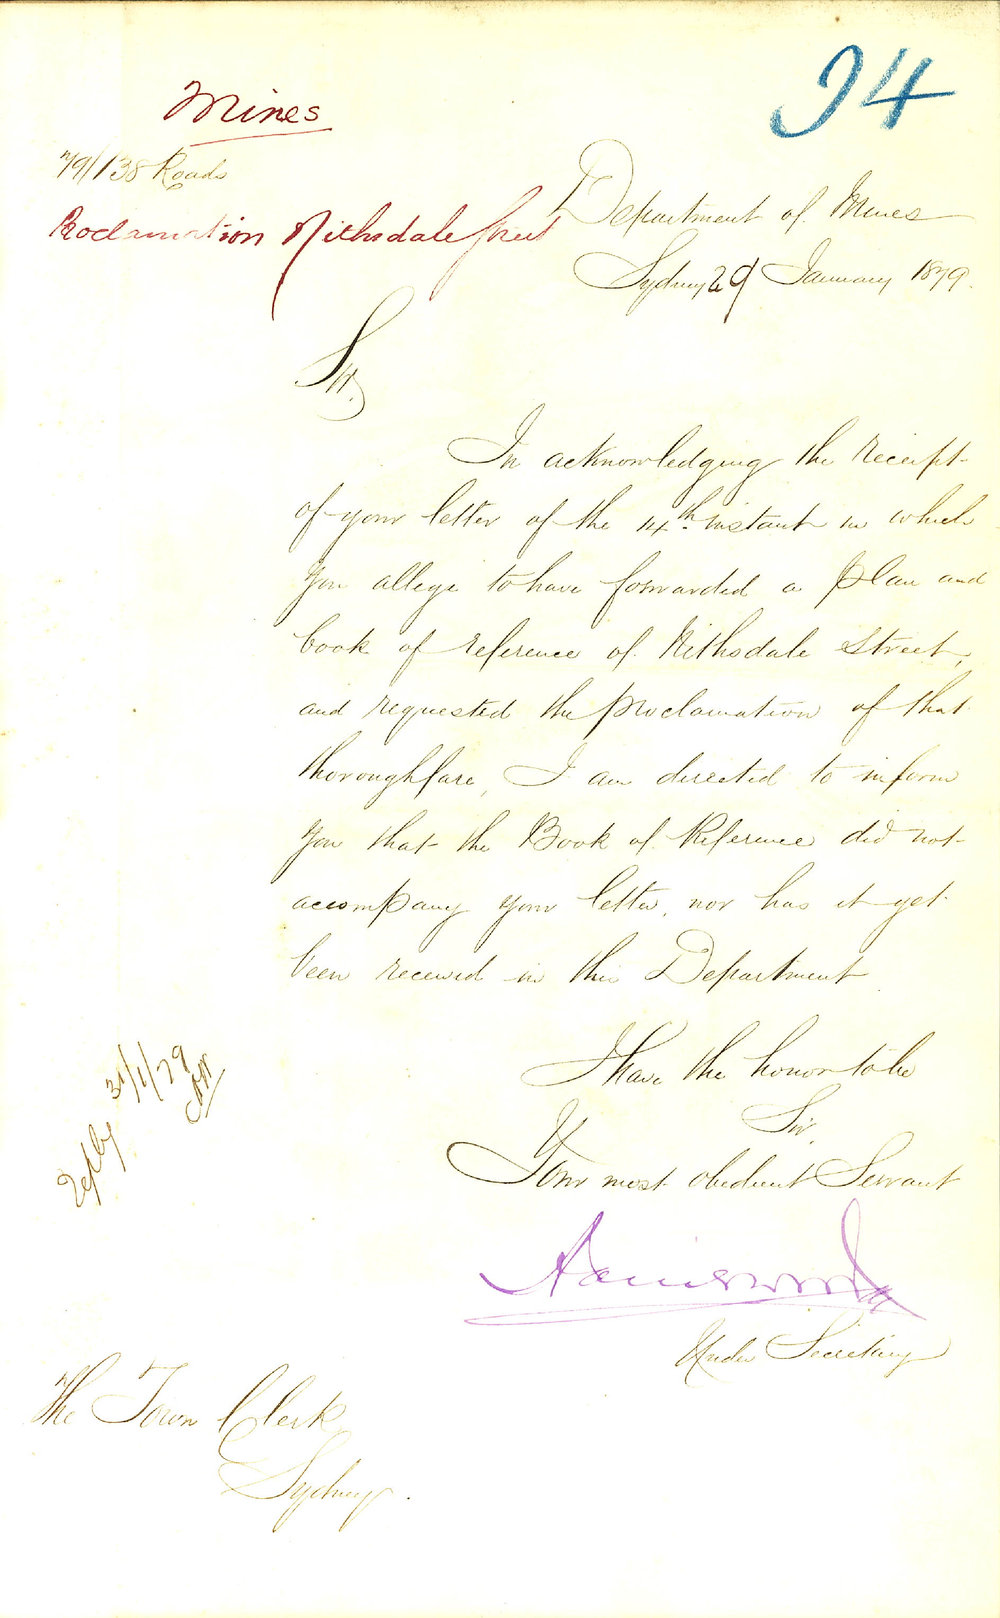 94
Mines
79/138 Roads
Proclamation Nithsdale Street
Department of Mines
Sydney 29 January 1879.
Sir.
In acknowledging the receipt
of your letter of the 14th instant in which
you allege to have forwarded a plan and
book of reference of Nithsdale Street,
and requested the proclamation of that
thoroughfare, I am directed to inform
you that the Book of Reference did not
accompany your letter, nor has it yet
been received in this Department.
I have the honor to be
Sir,
Your most obedient Servant
Under Secretary
Reply 31/1/79
The Town Clerk
Sydney.